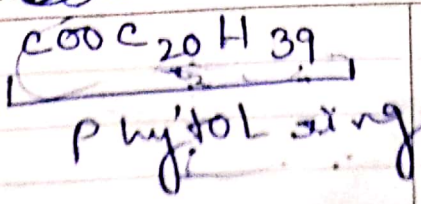 COOC20H39
Phytol ring